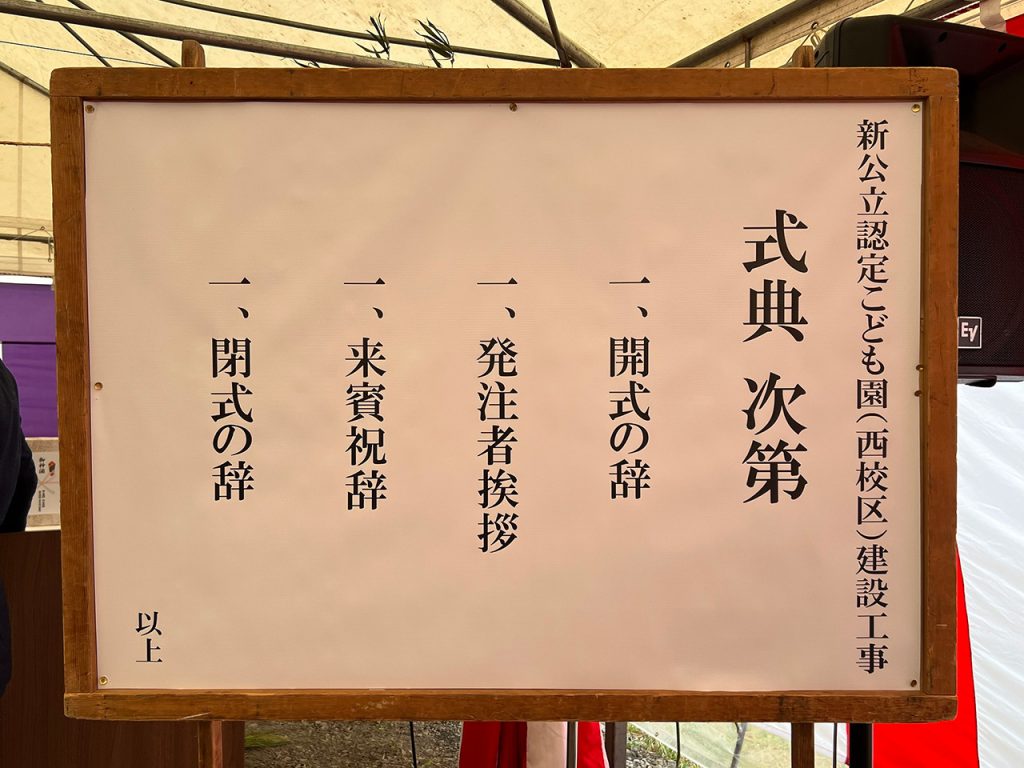 新公立認定こども園(西校区)建設工事
式典 次第
一、開式の辞
一、発注者挨拶
一、来賓祝辞
一、閉式の辞
以上
EV